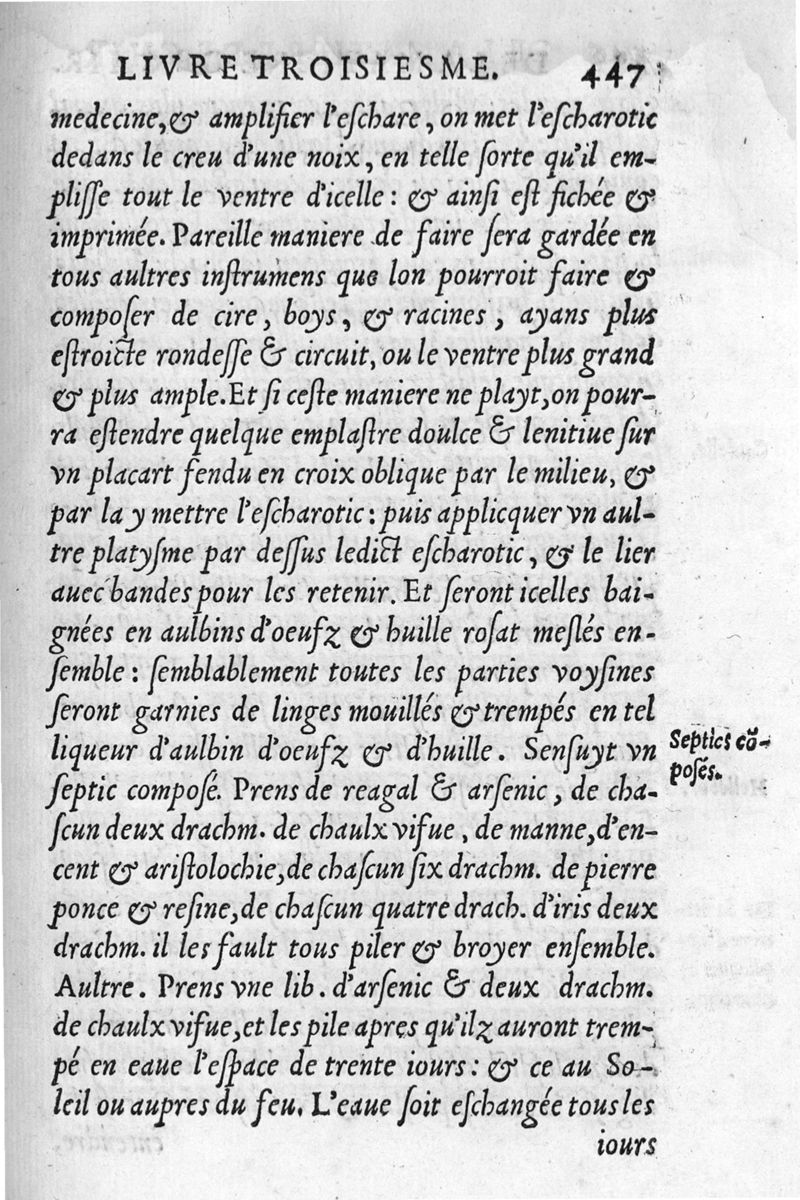 LIVRE TROISIESME. 447
medecine,& amplifier l'eſchare, on met l'eſcharotic
dedans le creu d'une noix, en telle ſorte qu'il em-
pliſſe tout le ventre d'icelle: & ainſi eſt fichée &
imprimée. Pareille maniere de faire ſera gardée en
tous aultres inſtrumens que lon pourroit faire &
compoſer de cire, boys, & racines, ayans plus
eſtroicte rondeſſe & circuit, ou le ventre plus grand
& plus ample. Et ſi ceſte maniere ne playt, on pour-
ra eſtendre quelque emplaſtre doulce & lenitiue ſur
vn placart fendu en croix oblique par le milieu, &
par la y mettre l'eſcharotic: puis applicquer vn aul-
tre platyſme par deſſus ledict eſcharotic, & le lier
auec bandes pour les retenir. Et ſeront icelles bai-
gnées en aulbins d'oeufz & huille roſat meſlés en-
ſemble: ſemblablement toutes les parties voyſines
ſeront garnies de linges mouillés & trempés en tel
liqueur d'aulbin d'oeufz & d'huille. Senſuyt vn
Septics cõ-
poſés.
ſeptic compoſé. Prens de reagal & arſenic, de cha-
ſcun deux drachm. de chaulx vifue, de manne, d'en-
cent & ariſtolochie, de chaſcun ſix drachm. de pierre
ponce & reſine, de chaſcun quatre drach. d'iris deux
drachm. il les fault tous piler & broyer enſemble.
Aultre. Prens vne lib. d'arſenic & deux drachm.
de chaulx vifue, et les pile apres qu'ilz auront trem-
pé en eaue l'eſpace de trente iours: & ce au So-
leil ou aupres du feu. L'eaue ſoit eſchangée tous les
iours